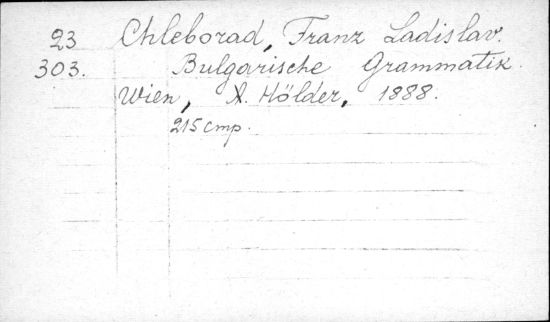 23 Chleborad, Franz Ladislav.
303. Bulgarische Grammatik.
Wien, A. Hölder, 1888.
215 cmp.